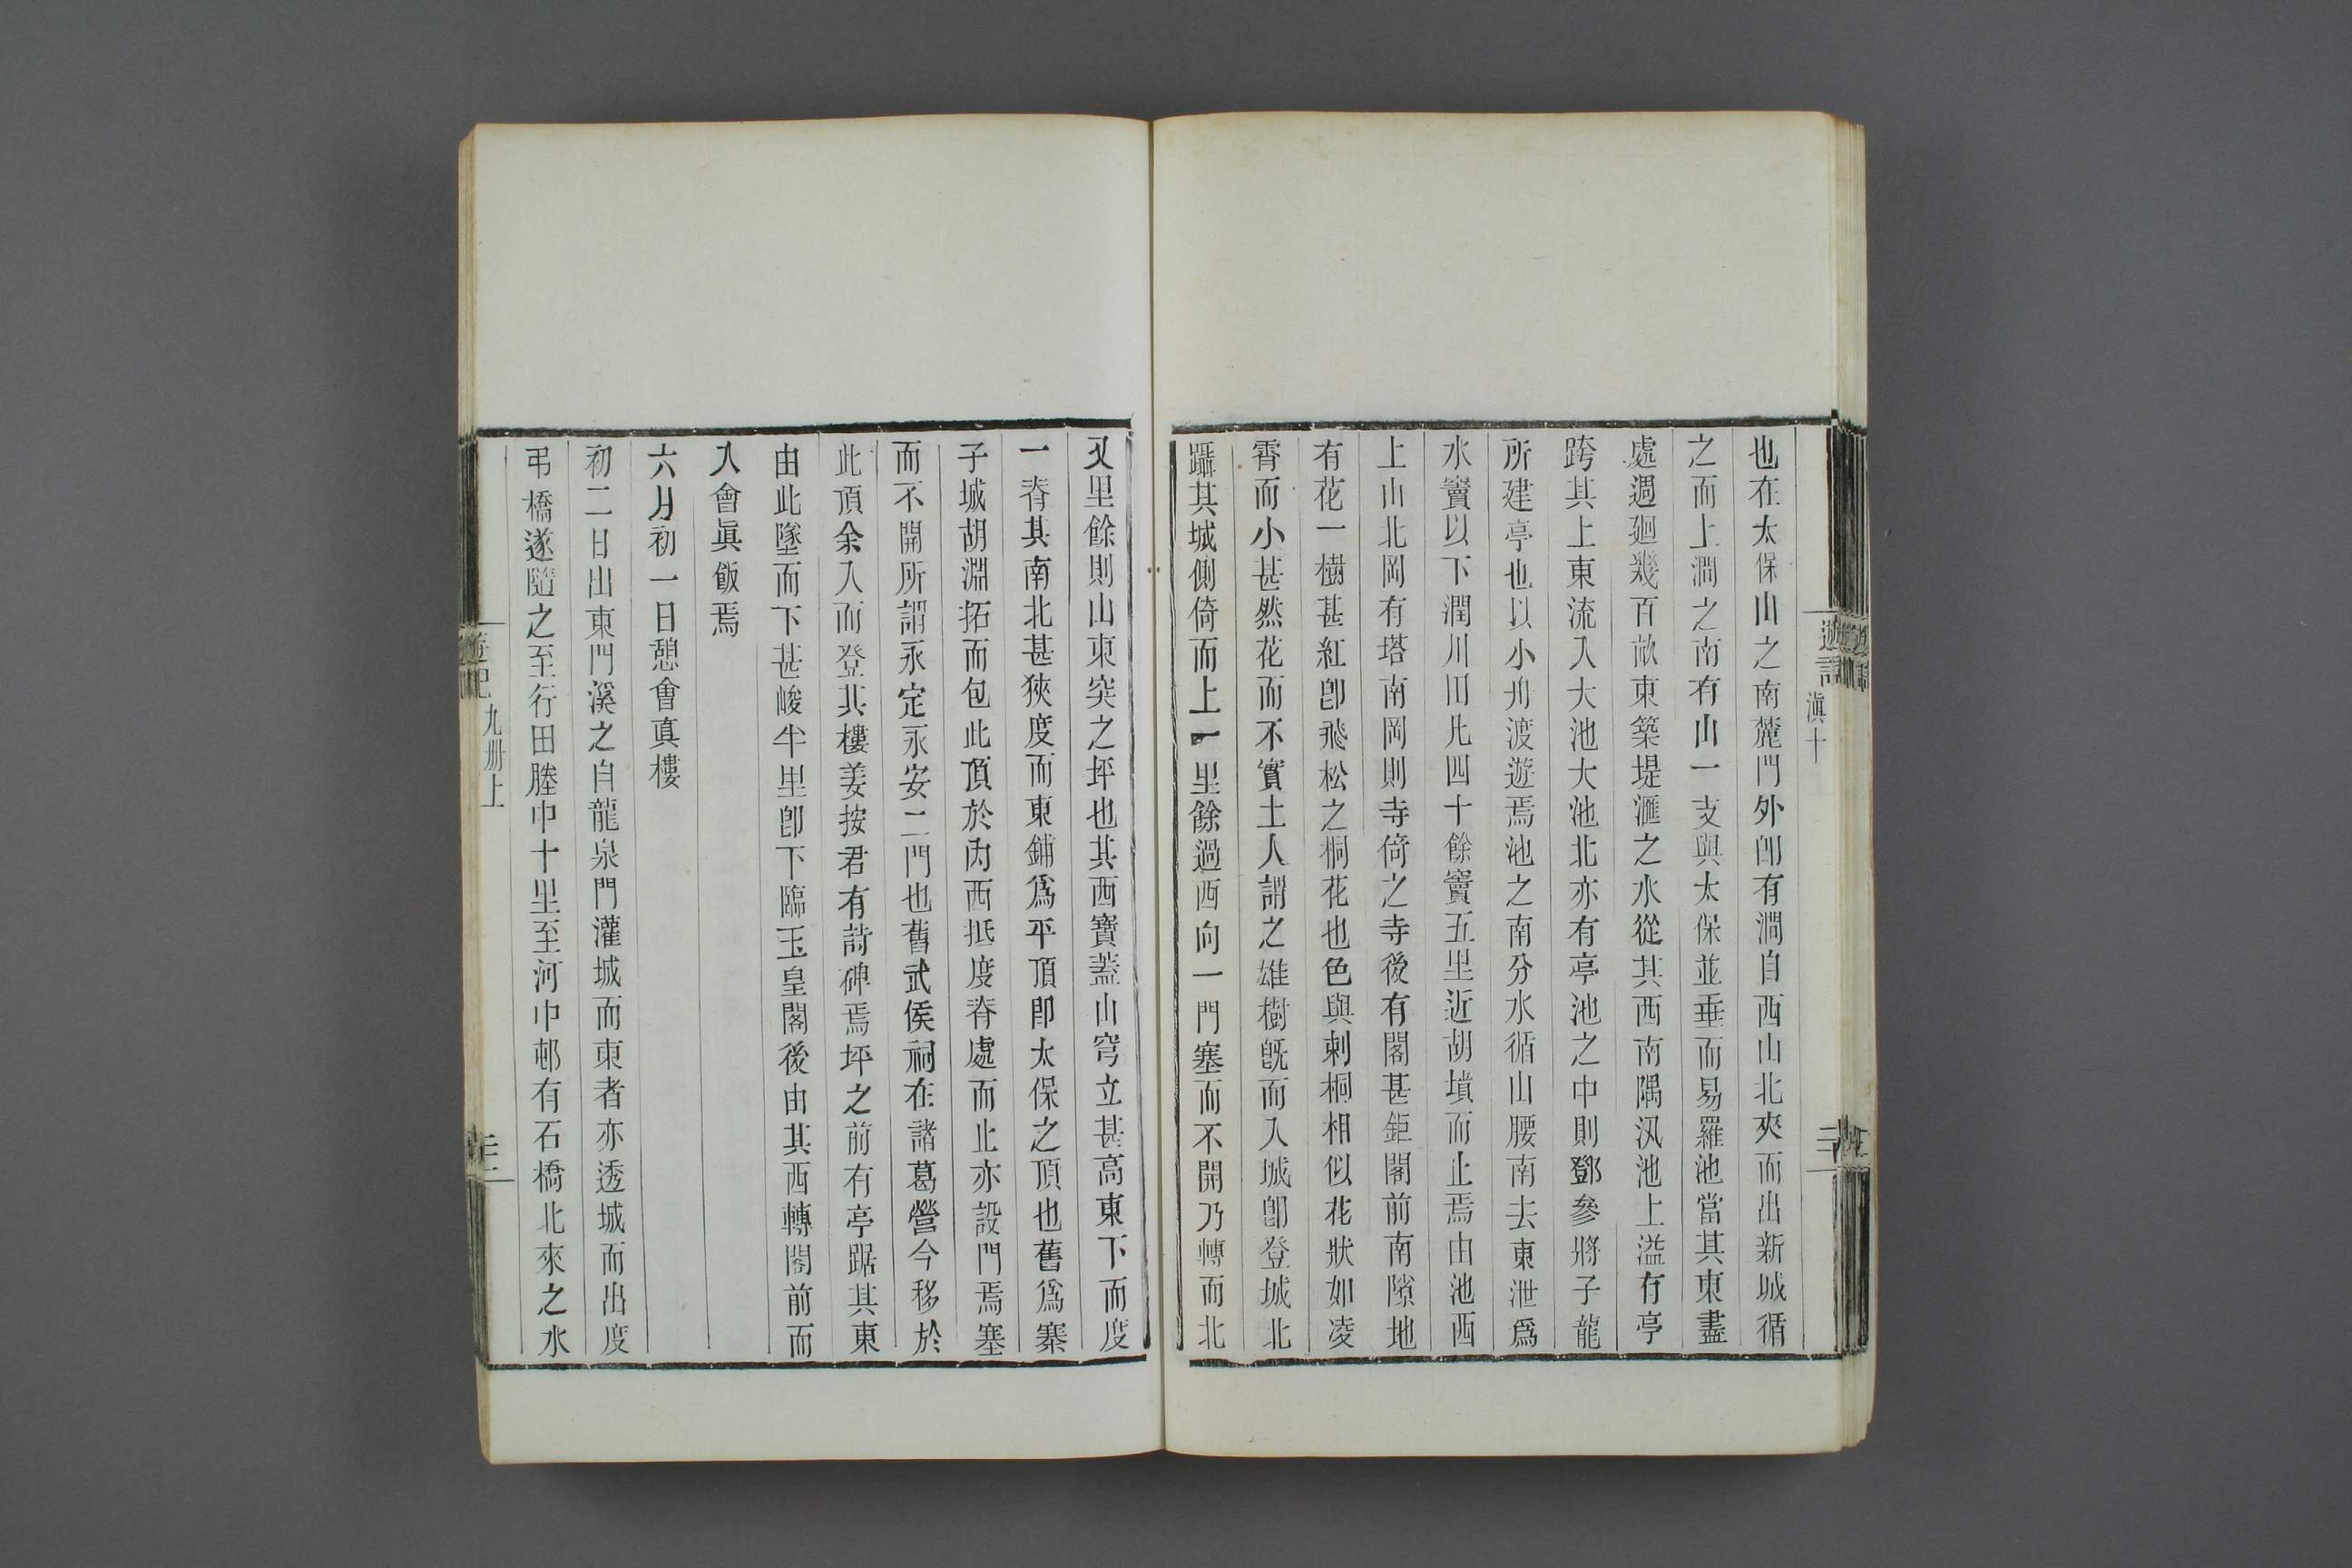 遊記
滇十
也在太保山之南麓門外卽有澗自西山北夾而出新城循
之而上澗之南有山一支與太保並垂而易羅池當其東盡
處週廻幾百畝東築堤滙之水從其西南隅汎池上溢有亭
跨其上東流入大池大池北亦有亭池之中則鄧參將子龍
所建亭也以小舟渡遊焉池之南分水循山腰南去東泄爲
水竇以下潤川田凡四十餘竇五里近胡墳而止焉由池西
上山北岡有塔南岡則寺倚之寺後有閣甚鉅閣前南隙地
有花一樹甚紅卽飛松之桐花也色與刺桐相似花狀如凌
霄而小甚然花而不實土人謂之雄樹旣而入城卽登城北
躡其城側倚而上一里餘過西向一門塞而不開乃轉而北
又里餘則山東突之坪也其西寶蓋山穹立甚高東下而度
一脊其南北甚狹度而東鋪爲平頂卽太保之頂也舊爲寨
子城胡淵拓而包此頂於內西抵度脊處而止亦設門焉塞
而不開所謂永定永安二門也舊武侯祠在諸葛營今移於
此頂余入而登其樓姜按君有詩碑焉坪之前有亭踞其東
由此墜而下甚峻半里卽下臨玉皇閣後由其西轉閣前而
入會眞飯焉
六月初一日憩會眞樓
初二日出東門溪之自龍泉門灌城而東者亦透城而出度
弔橋遂隨之至行田塍中十里至河中邨有石橋北來之水
九册上